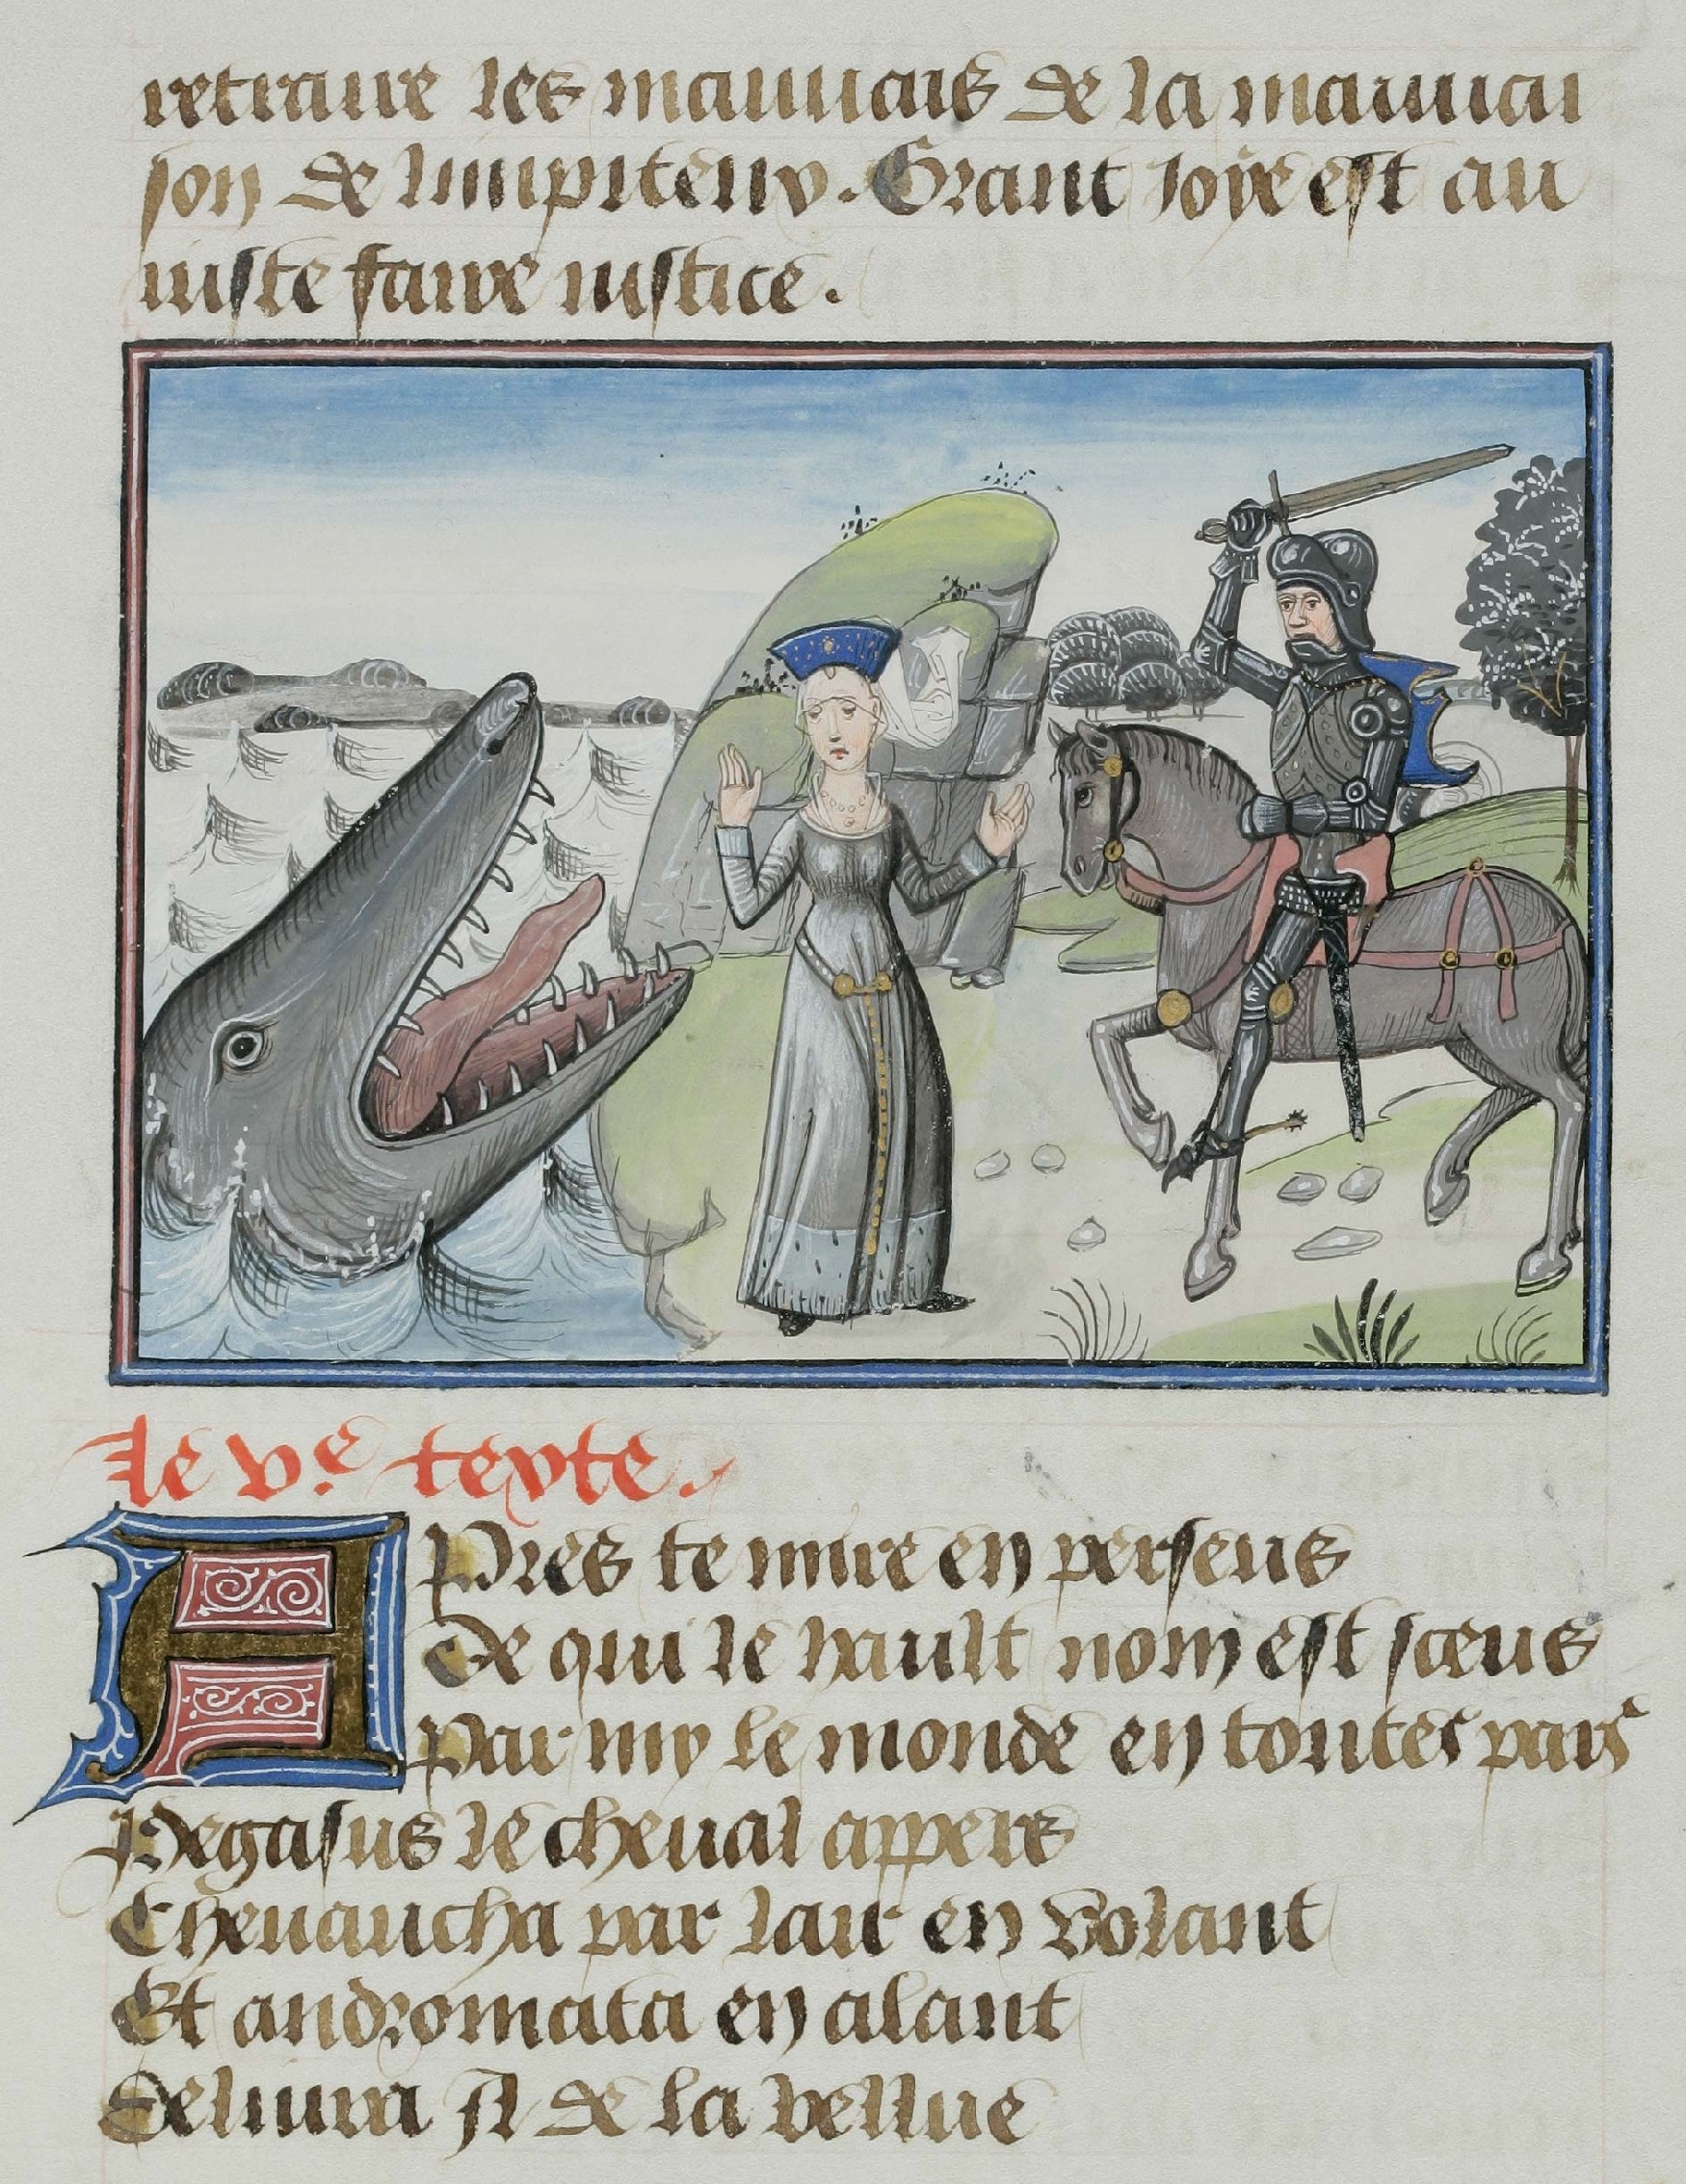 retraire les mauuais de la mauuai
son de limpiteux. Grant ioye est au
iuste faire iustice.
le v.e texte.
Apres te mire en perseus
De qui le hault nom est sceus
Par my le monde en toutes pars
Pegasus le cheual appers
Cheuaucha par lair en volant
Et andromata en alant
Deliura Jl de la bellue